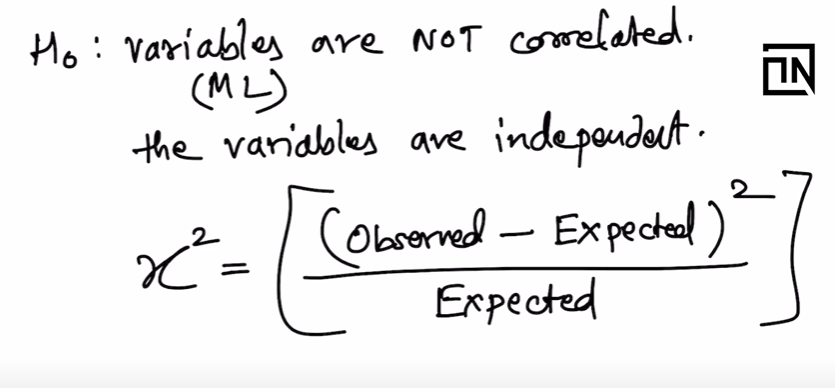 H₀ : variables are NOT correlated.
(ML)
the variables are independent.
x² = [(Observed – Expected)² / Expected]